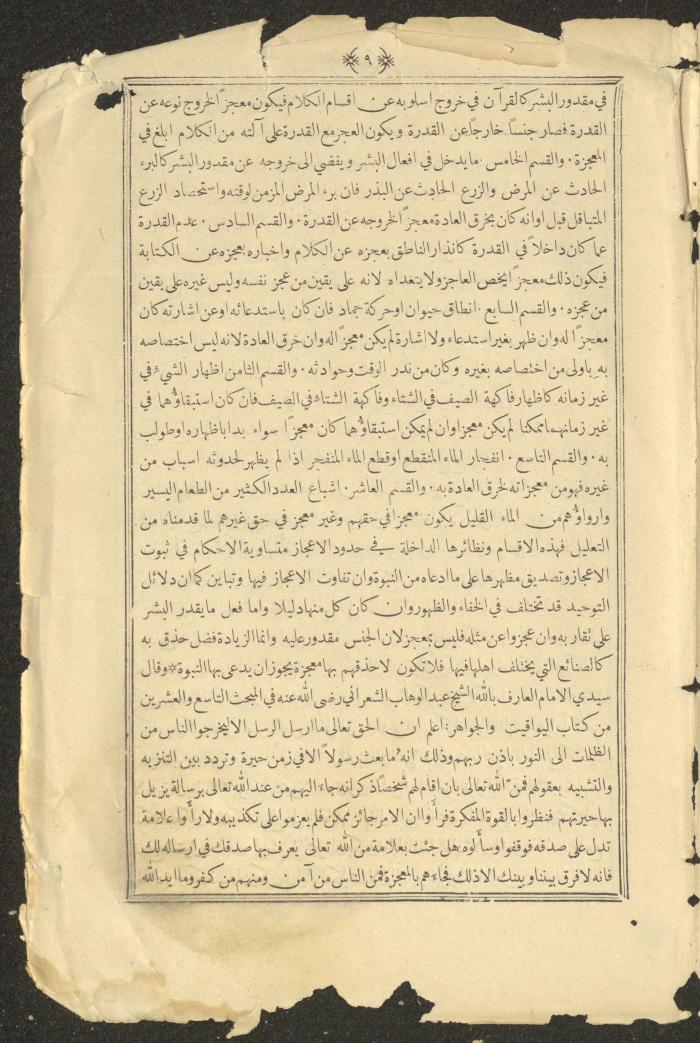 ٩
في مقدور البشر كالقرآن في خروج اسلوبه عن اقسام الكلام فيكون معجزاً لخروج نوعه عن
القدرة فصار جنساً خارجاً عن القدرة ويكون العجز مع القدرة على آلته من الكلام ابلغ في
المعجزة . والقسم الخامس . ما يدخل في افعال البشر ويفضي الى خروجه عن مقدور البشر كالبرء
الحادث عن المرض والزرع الحادث عن البذر فان برء المرض المزمن لوقته واستحصاد الزرع
المتباقل قبل اوانه كان بخرق العادة معجزاً لخروجه عن القدرة . والقسم السادس . عدم القدرة
عما كان داخلاً في القدرة كانذار الناطق بعجزه عن الكلام واخباره بعجزه عن الكتابة
فيكون ذلك معجزاً يخص العاجز ولا يتعداه لانه على يقين من عجز نفسه وليس غيره على يقين
من عجزه . والقسم السابع . انطاق حيوان او حركة جماد فان كان باستدعائه او عن اشارته كان
معجزاً له وان ظهر بغير استدعاء ولا اشارة لم يكن معجزاً له وان خرق العادة لانه ليس اختصاصه
به باولى من اختصاصه بغيره وكان من ندر الوقت وحوادثه . والقسم الثامن اظهار الشيء في
غير زمانه كاظهار فاكهة الصيف في الشتاء وفاكهة الشتاء في الصيف فان كان استبقاؤهما في
غير زمانهما ممكنا لم يكن معجزا وان لم يمكن استبقاؤهما كان معجزاً سواء بدا باظهاره او طولب
به . والقسم التاسع . انفجار الماء المنقطع او قطع الماء المنفجر اذا لم يظهر لحدوثه اسباب من
غيره فهو من معجزاته لخرق العادة به . والقسم العاشر . اشباع العدد الكثير من الطعام اليسير
وارواؤهم من الماء القليل يكون معجزا في حقهم وغير معجز في حق غيرهم لما قدمناه من
التعليل فهذه الاقسام ونظائرها الداخلة في حدود الاعجاز متساوية الاحكام في ثبوت
الاعجاز وتصديق مظهرها على ما ادعاه من النبوة وان تفاوت الاعجاز فيها وتباين كما ان دلائل
التوحيد قد تختلف في الخفاء والظهور وان كان كل منها دليلا واما فعل ما يقدر البشر
على تقاربه وان عجزوا عن مثله فليس بمعجز لان الجنس مقدور عليه وانما الزيادة فضل حذق به
كالصنائع التي يختلف اهلها فيها فلا تكون لاحذقهم بها معجزة يجوز ان يدعى بها النبوة * وقال
سيدي الامام العارف بالله الشيخ عبد الوهاب الشعراني رضى الله عنه في المبحث التاسع والعشرين
من كتاب اليواقيت والجواهر: اعلم ان الحق تعالى ما ارسل الرسل الا ليخرجوا الناس من
الظلمات الى النور باذن ربهم وذلك انه ما بعث رسولاً الا في زمن حيرة وتردد بين التنزيه
والتشبيه بعقولهم فمنّ الله تعالى بان اقام لهم شخصاً ذكر انه جاء اليهم من عند الله تعالى برسالة يزيل
بها حيرتهم فنظروا بالقوة المفكرة فرأوا ان الامر جائز ممكن فلم يعزموا على تكذيبه ولا رأوا علامة
تدل على صدقه فوقفوا وسألوه هل جئت بعلامة من الله تعالى يعرف بها صدقك في ارساله لك
فانه لا فرق بيننا وبينك الا ذلك فجاءهم بالمعجزة فمن الناس من آمن ومنهم من كفر وما ايد الله